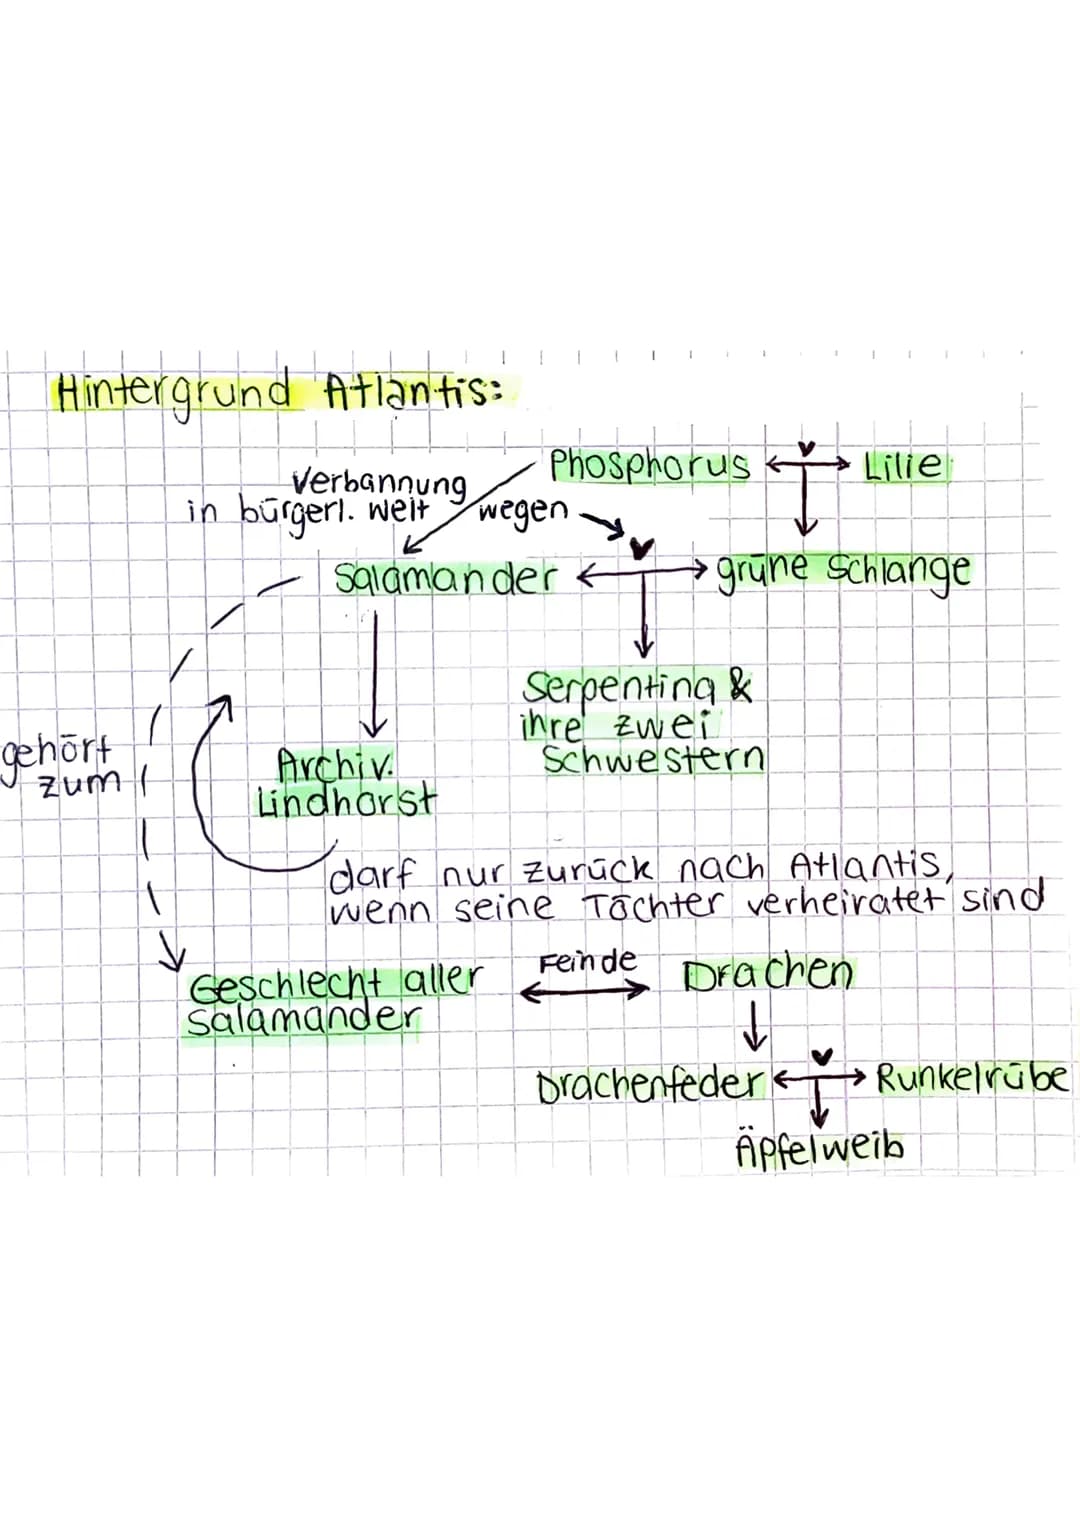 Hintergrund Atlantis:
Phosphorus
Lilie
Verbannung
in bürgerl. Welt
wegen
Salamander
grüne Schlange
Serpentina &
ihre zwei
Schwestern
gehört
zum
Archiv.
Lindhorst
darf nur zurück nach Atlantis,
wenn seine Töchter verheiratet sind
Geschlecht aller
Salamander
Feinde
Drachen
Drachenfeder
Runkelrübe
Äpfelweib